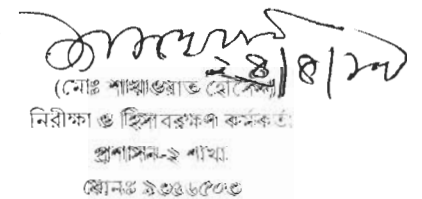 ২৪/৪/
(মোঃ শাখাওয়াত হোসেন)
নিরীক্ষা ও হিসাবরক্ষণ কর্মকর্তা
প্রশাসন-২ শাখা
ফোনঃ ৯৫৪৬৫০৩